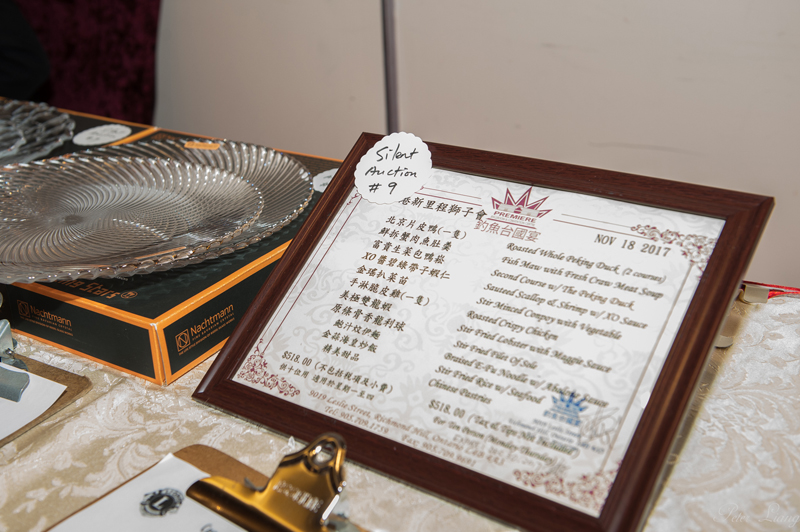 Silent
Auction
# 9
斯里程獅子會
PREMIERE
釣魚台國宴
NOV 18 2017
北京片皮鴨(一隻)
鮮拆蟹肉魚肚羹
富貴生菜包鴨崧
XO醬碧綠帶子蝦仁
金瑤扒菜苗
手淋脆皮雞(一隻)
美極雙龍蝦
原條骨香龍利球
鮑汁炆伊麵
金菇海皇炒飯
精美甜品
$518.00 (不包括稅項及小費)
供十位用 適用於星期一至四
Roasted Whole Peking Duck (2 courses)
Fish Maw with Fresh Craw Meat Soup
Second Course w/ The Peking Duck
Sauteed Scallop & Shrimp w/ XO Sauce
Stir Minced Conpoy with Vegetable
Roasted Crispy Chicken
Stir Fried Lobster with Maggie Sauce
Stir Fried Filet Of Sole
Braised E-Fu Noodle w/ Abalone Sauce
Stir Fried Rice w/ Seafood
Chinese Pastries
$518.00 (Tax & Tips Not Included)
For Ten Person (Monday - Thursday)
9019 Leslie Street, Richmond Hill, Ontario
Tel: 905.709.1759
Nachtmann
Nachtmann